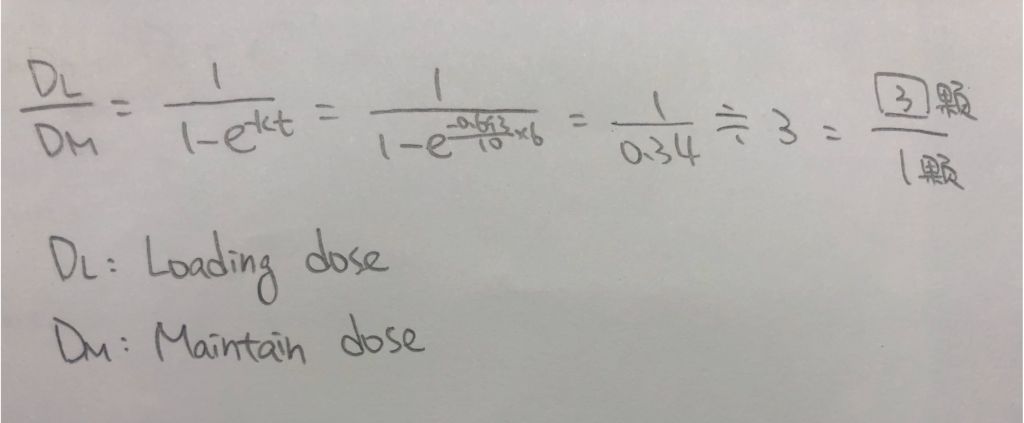 DL/DM = 1/(1-e^-kt) = 1/(1-e^(-0.693/10 ×6)) = 1/0.34 ≒ 3 = 3颗/1颗
DL: Loading dose
DM: Maintain dose